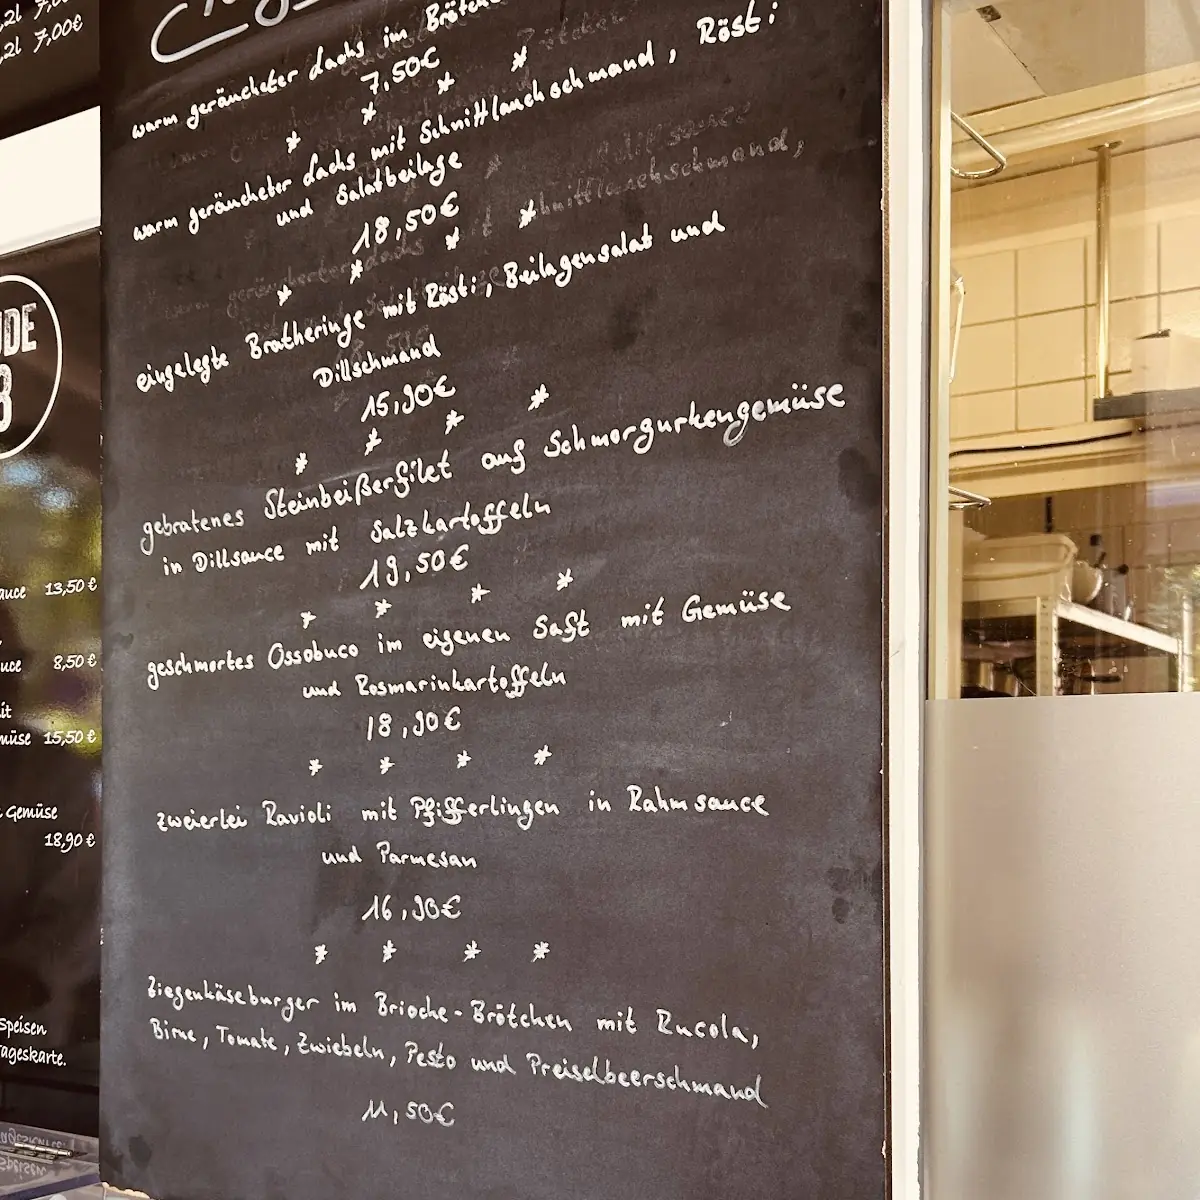 2l 7,00€
warm geräucheter Lachs im
7,50€
* * * *
warm geräucheter Lachs mit Schnittlauchschmand, Rösti
und Salatbeilage
18,50€
* * * *
eingelegte Bratheringe mit Rösti, Beilagensalat und
Dillschmand
15,90€
* * * *
gebratenes Steinbeißerfilet auf Schmorgurkengemüse
in Dillsauce mit Salzkartoffeln
19,50€
* * * *
geschmortes Ossobuco im eigenen Saft mit Gemüse
und Rosmarinkartoffeln
18,90€
* * * *
zweierlei Ravioli mit Pfifferlingen in Rahmsauce
und Parmesan
16,90€
* * * *
Ziegenkäseburger im Brioche-Brötchen mit Rucola,
Birne, Tomate, Zwiebeln, Pesto und Preiselbeerschmand
11,50€
13,50 €
8,50 €
15,50 €
Gemüse
18,90 €
Speisen